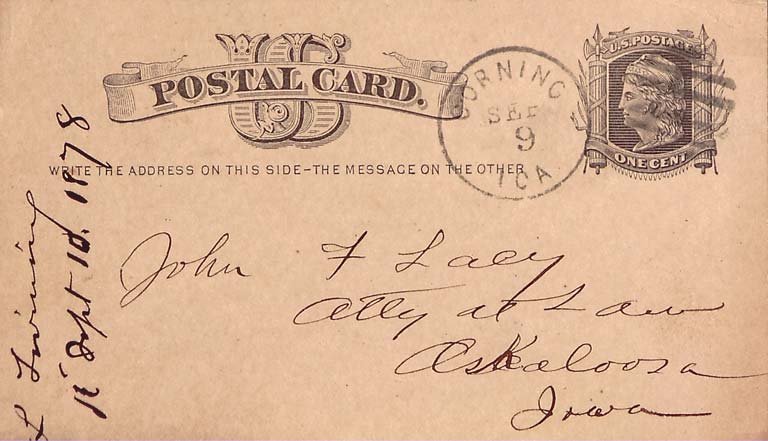 US
POSTAL CARD.
WRITE THE ADDRESS ON THIS SIDE-THE MESSAGE ON THE OTHER
CORNING
SEP
9
IOA
U.S. POSTAGE
ONE CENT
John F Lacy
Atty at Law
Oskaloosa
Iowa
Sept 10. 1878